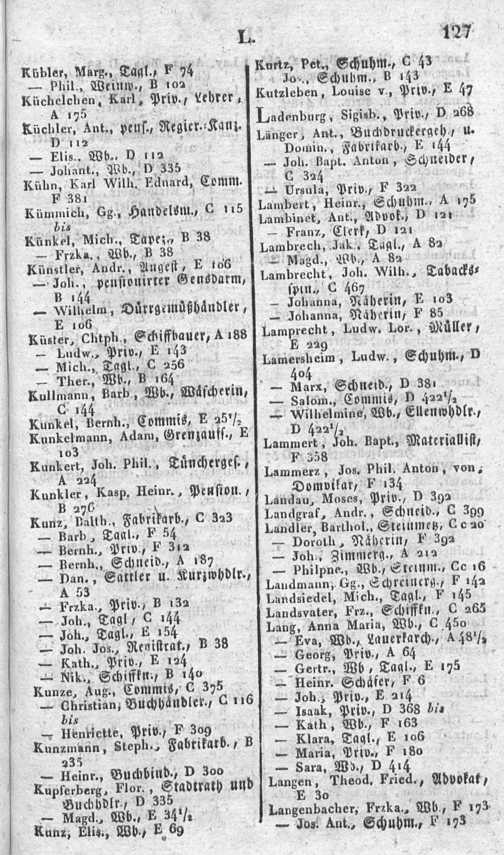 L.
127
Kübler, Marg., Tagl., F 74
— Phil., Weinw., B 102
Küchelchen, Karl, Priv., Lehrer,
A 175
Küchler, Ant., pens., Regier.-Kanz.
D 112
— Elis., Wb., D 112
— Johant., Wb., D 335
Kühn, Karl Wilh. Eduard, Comm.
F 381
Kümmich, Gg., Handelsm., C 115
bis
Künkel, Mich., Tapez., B 38
— Frzka., Wb., B 38
Künstler, Andr., Angest., E 106
— Joh., pensionirter Gensdarm,
B 144
— Wilhelm, Dürrgemüßhändler,
E 106
Küster, Chtph., Schiffbauer, A 188
— Ludw., Priv., E 143
— Mich., Tagl., C 256
— Ther., Wb., B 164
Kullmann, Barb., Wb., Wäscherin,
C 144
Kunkel, Bernh., Commis, E 25 1/2
Kunkelmann, Adam, Grenzauff., E
103
Kunkert, Joh. Phil., Tünchergef.,
A 224
Kunkler, Kasp. Heinr., Pension.,
B 276
Kunz, Balth., Fabrikarb., C 323
— Barb., Tagl., F 54
— Bernh., Priv., F 312
— Bernh., Schneid., A 187
— Dan., Sattler u. Kurzwhdlr.,
A 53
— Frzka., Priv., B 132
— Joh., Tagl., C 144
— Joh., Tagl., E 154
— Joh. Jos., Registrat., B 38
— Kath., Priv., E 124
— Nik., Schiffkn., B 140
Kunze, Aug., Commis, C 375
— Christian, Buchhändler., C 116
bis
— Henriette, Priv., F 309
Kunzmann, Steph., Fabrikarb., B
235
— Heinr., Buchbind., D 300
Kupferberg, Flor., Stadtrath und
Buchhdlr., D 335
— Magd., Wb., E 34 1/2
Kunz, Elis., Wb., E 69
Kurtz, Pet., Schuhm., C 43
— Jos., Schuhm., B 143
Kutzleben, Louise v., Priv., E 47
Ladenburg, Sigisb., Priv., D 268
Länger, Ant., Buchdruckergeh., u.
Domin., Fabrikarb., E 144
— Joh. Bapt. Anton, Schneider,
C 324
— Ursula, Priv., F 322
Lambert, Heinr., Schuhm., A 175
Lambinet, Ant., Advok., D 121
— Franz, Clerk, D 121
Lambrech, Jak., Tagl., A 82
— Magd., Wb., A 82
Lambrecht, Joh. Wilh., Tabacks-
spin., C 467
— Johanna, Näherin, E 103
— Johanna, Näherin, F 85
Lamprecht, Ludw. Lor., Müller,
E 229
Lamersheim, Ludw., Schuhm., D
404
— Marx, Schneid., D 381
— Salom., Commis, D 422 1/2
— Wilhelmine, Wb., Ellenwhdlr.,
D 422 1/2
Lammert, Joh. Bapt., Materialist,
F 358
Lammerz, Jos. Phil. Anton, von,
Domvikar, F 134
Landau, Moses, Priv., D 392
Landgraf, Andr., Schneid., C 399
Landler, Barthol., Steinmetz, Cc 20
— Doroth., Näherin, F 392
— Joh., Zimmerg., A 212
— Philpne., Wb., Steinm., Cc 16
Landmann, Gg., Schreinerg., F 142
Landsiedel, Mich., Tagl., F 145
Landsvater, Frz., Schiffkn., C 265
Lang, Anna Maria, Wb., C 450
— Eva, Wb., Lauerkarch., A 48 1/2
— Georg, Priv., A 64
— Gertr., Wb., Tagl., E 175
— Heinr. Schäfer, F 6
— Joh., Priv., E 214
— Isaak, Priv., D 368 bis
— Kath., Wb., F 163
— Klara, Tagl., E 106
— Maria, Priv., F 180
— Sara, Wb., D 414
Langen, Theod. Fried., Advokat,
E 30
Langenbacher, Frzka., Wb., F 173
— Jos. Ant., Schuhm., F 173